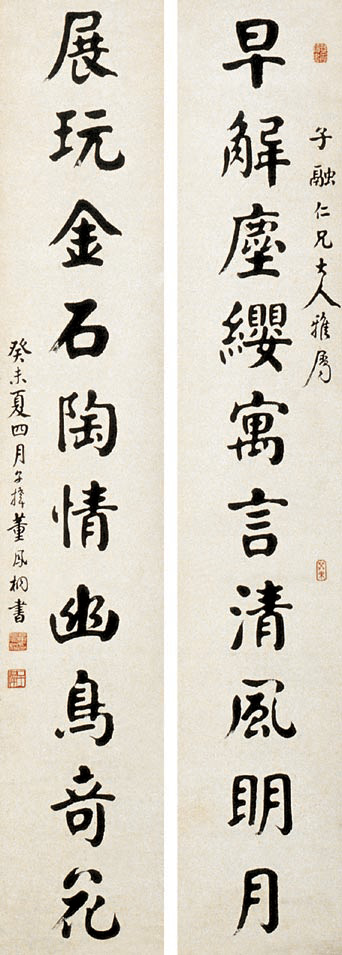 子融仁兄大人雅属
早解塵纓寓言清風明月
展玩金石陶情幽鳥奇花
癸未夏四月子擇董風桐書